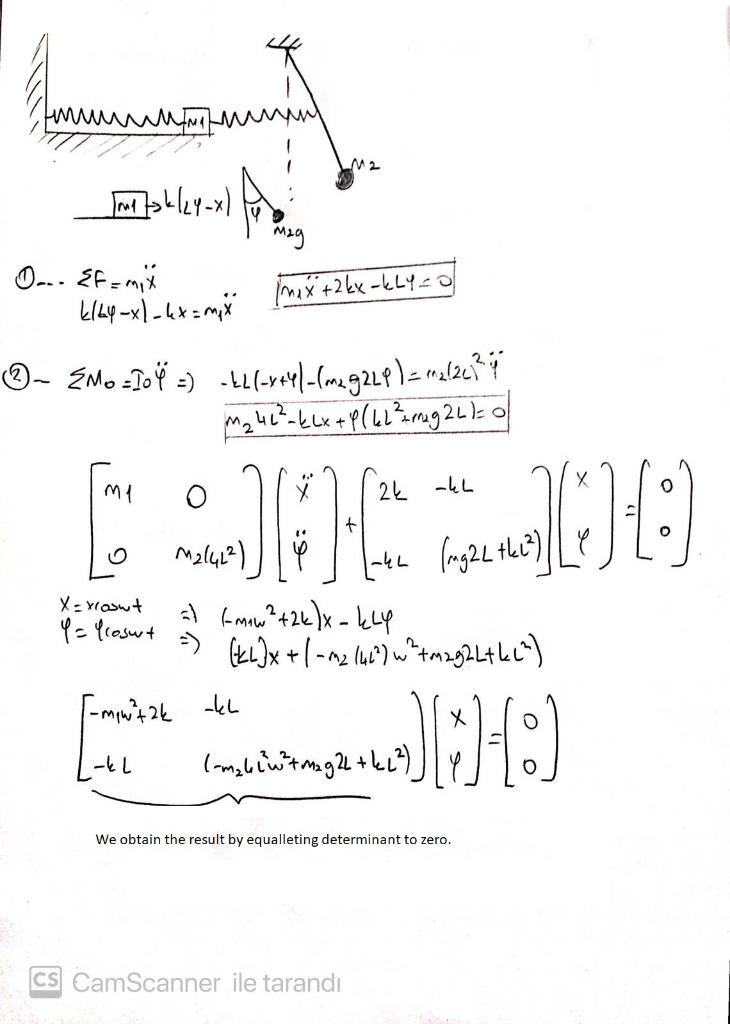 M1
M2
M1 → k(Lφ-x) φ
M2g
①--- ΣF = m₁ẍ
k(Lφ-x)-kx = m₁ẍ
m₁ẍ+2kx-kLφ=0
②- ΣMo = Ioφ̈ => -kL(-x+φ)-(m₂g2Lφ) = m₂(2L)²φ̈
m₂4L²-kLx+φ(kL²+m₂g2L)=0
[m1 0; 0 m2(4L²)] [ẍ; φ̈] + [2k -kL; -kL (mg2L+kL²)] [x; φ] = [0; 0]
x = xcoswt => (-m₁w²+2k)x - kLφ
φ = φcoswt => (-kL)x + (-m₂(4L²)w²+m₂g2L+kL²)
[-m₁w²+2k -kL; -kL (-m₂4L²w²+m₂g2L+kL²)] [x; φ] = [0; 0]
We obtain the result by equalleting determinant to zero.
CS CamScanner ile tarandı